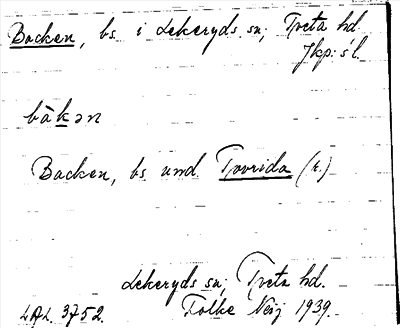 Backen, bs. i Lekeryds sn, Tveta hd.
Jkp: s l.
bàkən
Backen, bs und. Tovrida (r.)
Lekeryds sn, Tveta hd.
Folke Neij 1939.